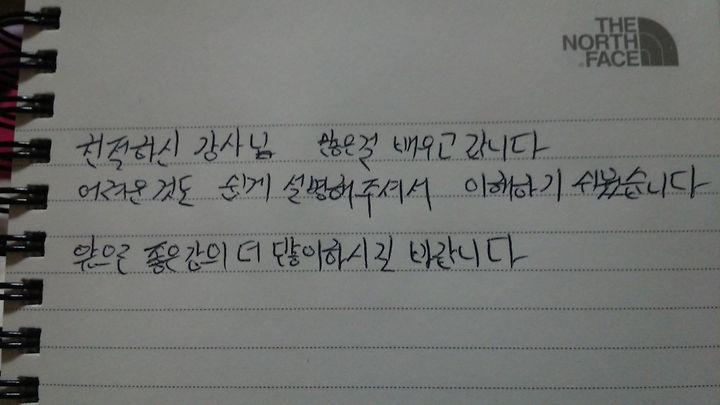 THE
NORTH
FACE
친절하신 강사님 많은걸 배우고 갑니다
어려운것도 쉽게 설명해주셔서 이해하기 쉬웠습니다
앞으로 좋은강의 더 많이하시길 바랍니다